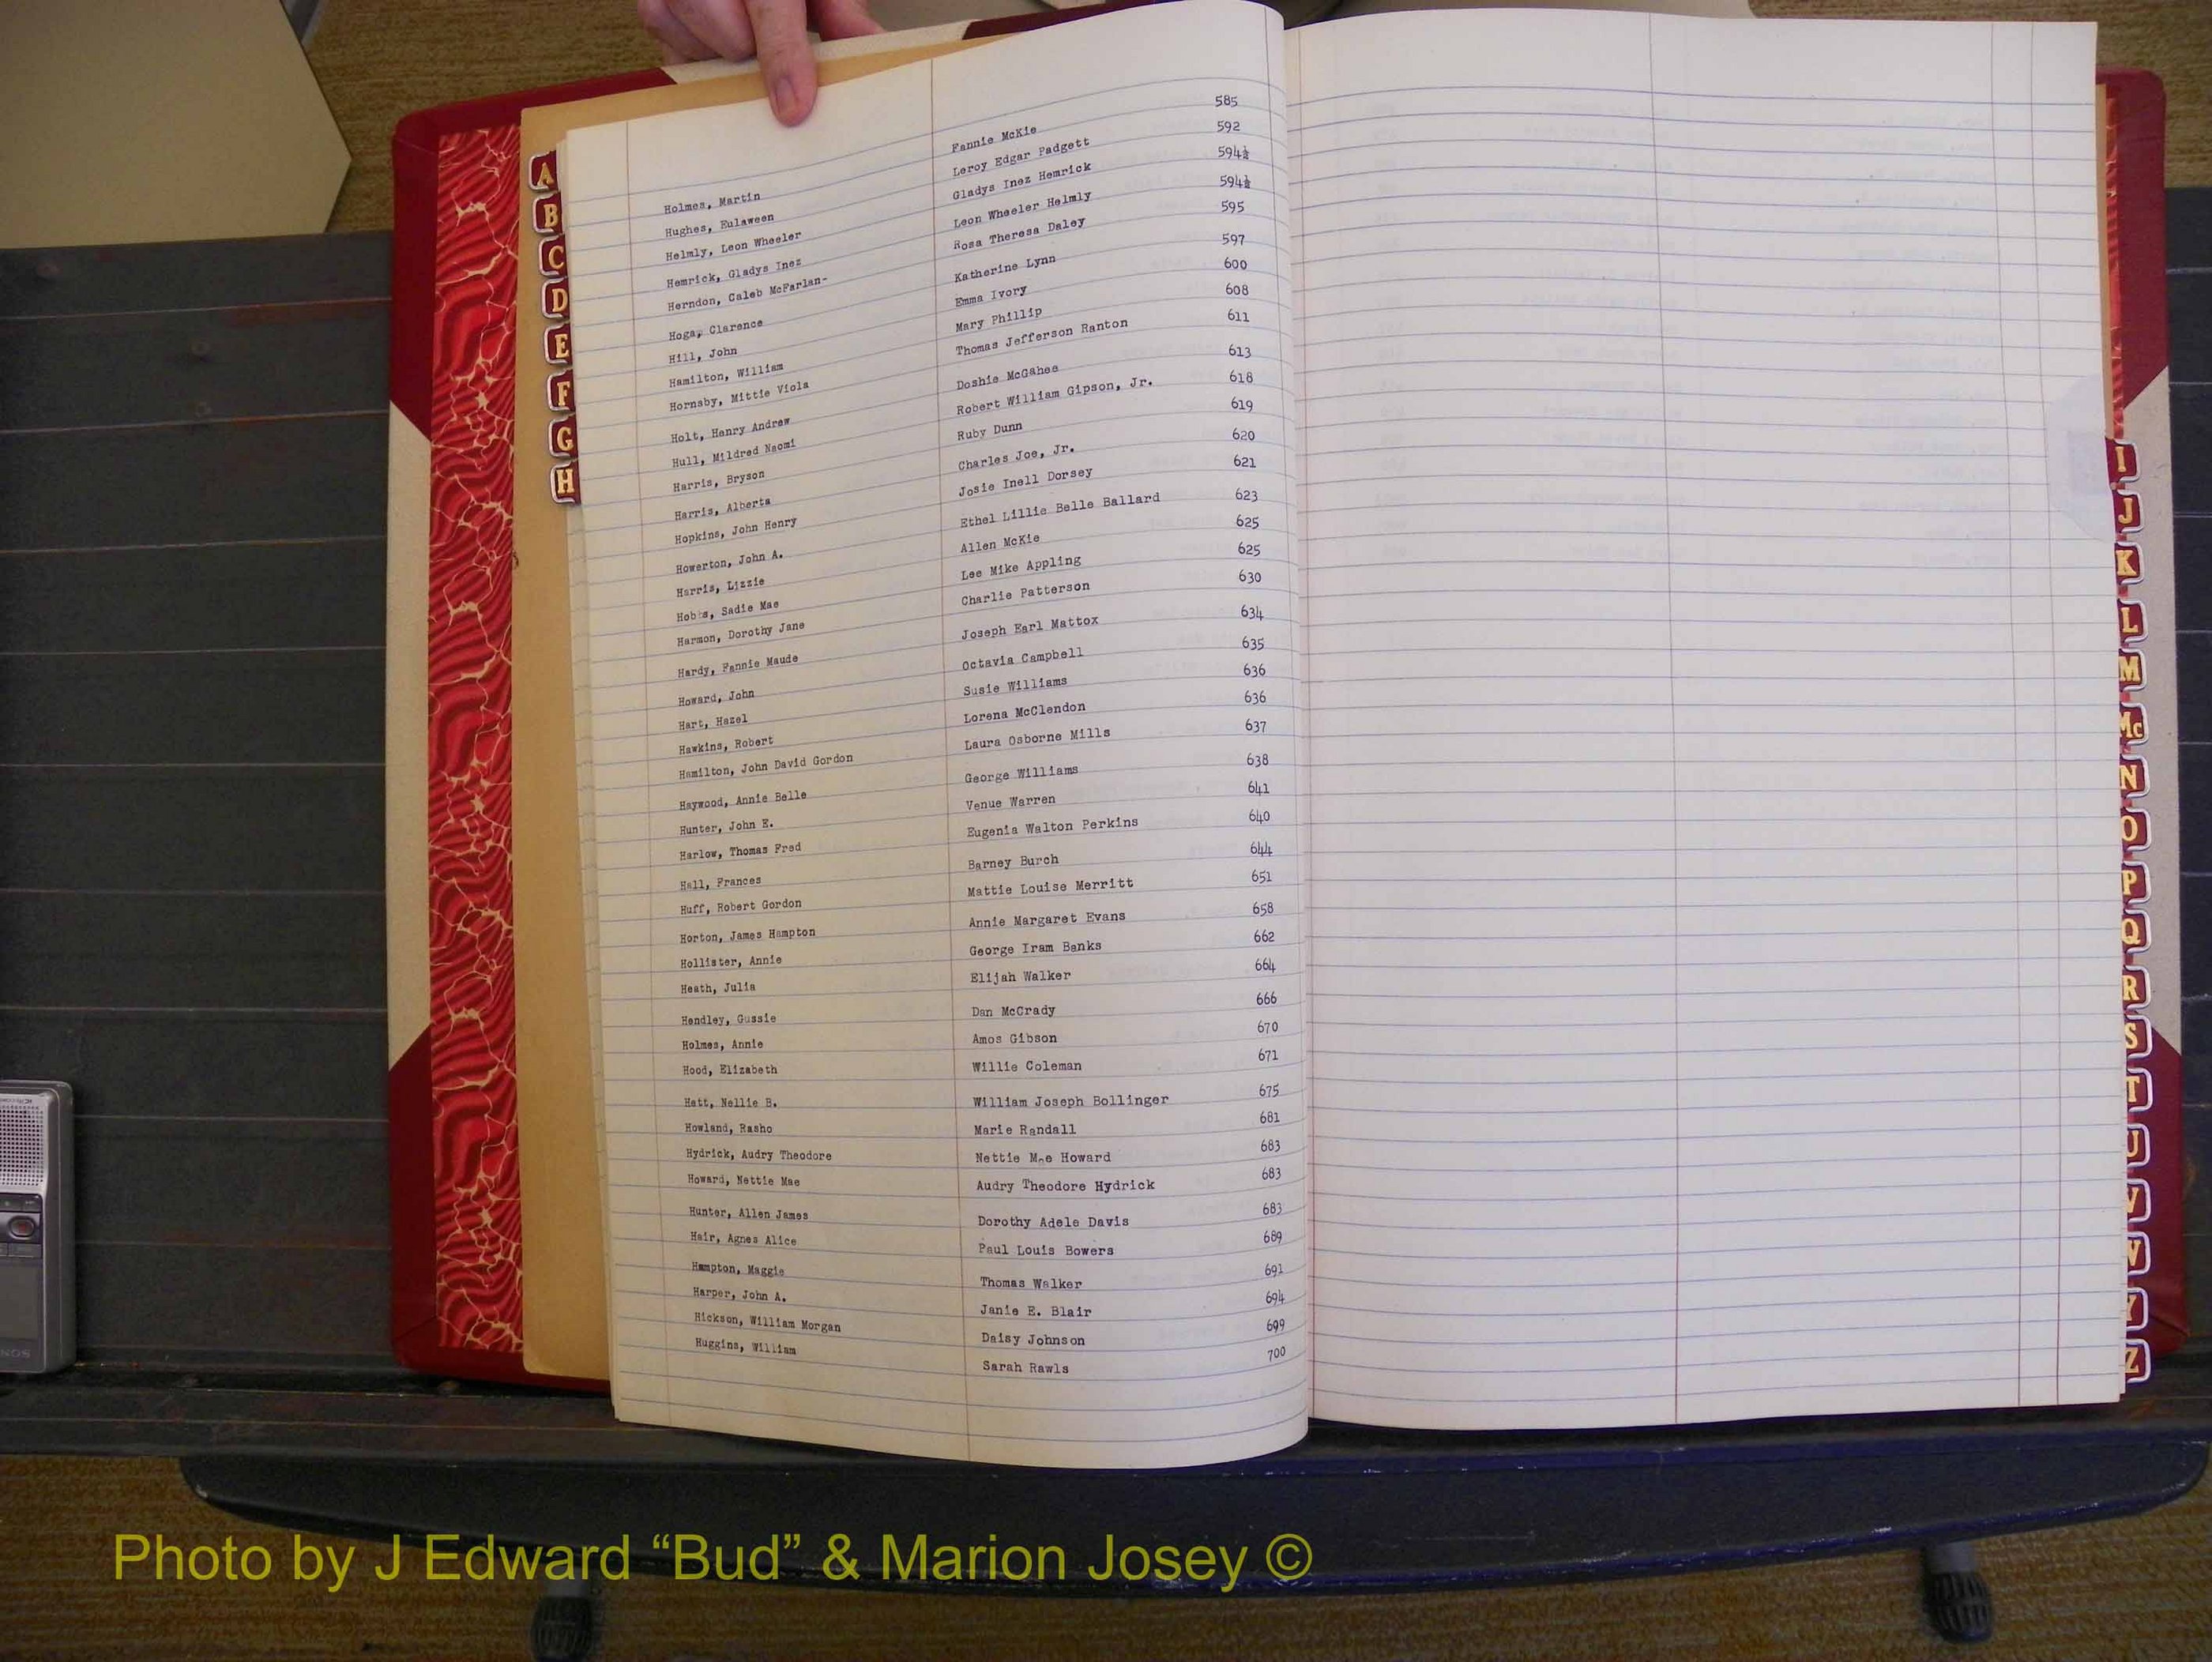 Holmes, Martin Fannie McKie 585
Hughes, Eulaween Leroy Edgar Padgett 592
Helmly, Leon Wheeler Gladys Inez Hemrick 594½
Hemrick, Gladys Inez Leon Wheeler Helmly 594½
Herndon, Caleb McFarlan- Rosa Theresa Daley 595
Hoga, Clarence Katherine Lynn 597
Hill, John Emma Ivory 600
Hamilton, William Mary Phillip 608
Hornsby, Mittie Viola Thomas Jefferson Ranton 611
Holt, Henry Andrew Doshie McGahee 613
Hull, Mildred Naomi Robert William Gipson, Jr. 618
Harris, Bryson Ruby Dunn 619
Harris, Alberta Charles Joe, Jr. 620
Hopkins, John Henry Josie Inell Dorsey 621
Howerton, John A. Ethel Lillie Belle Ballard 623
Harris, Lizzie Allen McKie 625
Hobbs, Sadie Mae Lee Mike Appling 625
Harmon, Dorothy Jane Charlie Patterson 630
Hardy, Fannie Maude Joseph Earl Mattox 634
Howard, John Octavia Campbell 635
Hart, Hazel Susie Williams 636
Hawkins, Robert Lorena McClendon 636
Hamilton, John David Gordon Laura Osborne Mills 637
Haywood, Annie Belle George Williams 638
Hunter, John E. Venue Warren 641
Harlow, Thomas Fred Eugenia Walton Perkins 640
Hall, Frances Barney Burch 644
Huff, Robert Gordon Mattie Louise Merritt 651
Horton, James Hampton Annie Margaret Evans 658
Hollister, Annie George Iram Banks 662
Heath, Julia Elijah Walker 664
Hendley, Gussie Dan McCrady 666
Holmes, Annie Amos Gibson 670
Hood, Elizabeth Willie Coleman 671
Hett, Nellie B. William Joseph Bollinger 675
Howland, Rasho Marie Randall 681
Hydrick, Audry Theodore Nettie Mae Howard 683
Howard, Nettie Mae Audry Theodore Hydrick 683
Hunter, Allen James Dorothy Adele Davis 683
Hair, Agnes Alice Paul Louis Bowers 689
Hampton, Maggie Thomas Walker 691
Harper, John A. Janie E. Blair 694
Hickson, William Morgan Daisy Johnson 699
Huggins, William Sarah Rawls 700
A
B
C
D
E
F
G
H
I
J
K
L
M
Mc
N
O
P
Q
R
S
T
U
V
W
Y
Z
Photo by J Edward “Bud” & Marion Josey ©